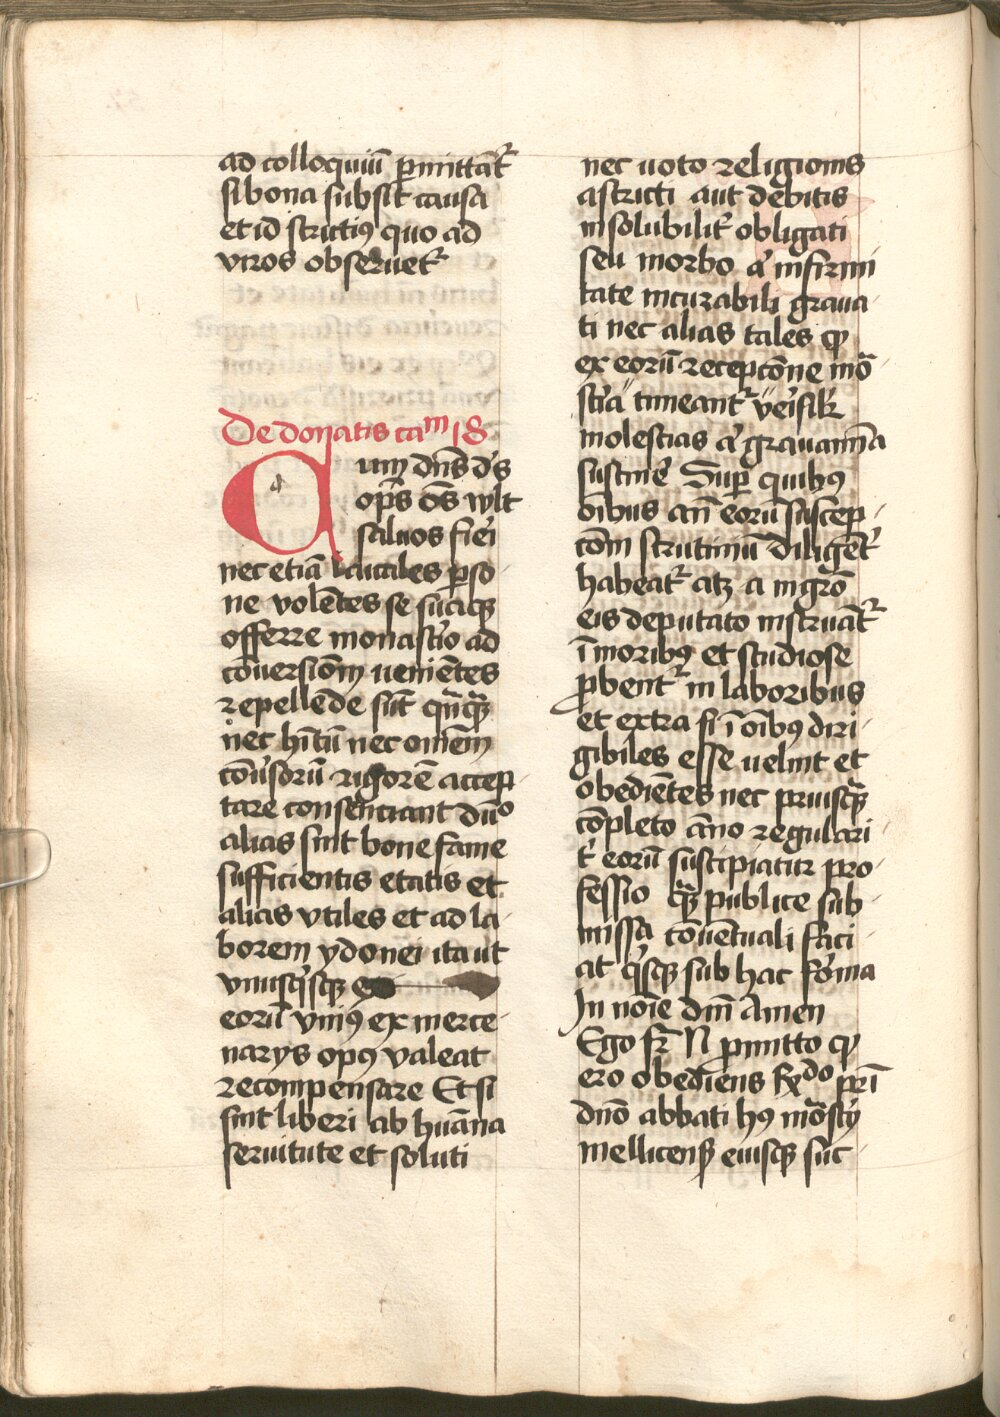 ad colloquiū p̄mittāt᷑
si bona subsit causa
et id strictiꝰ quo ad
viros obseruet᷑
De donatis cam 18
Cum dn̄s d's
op̄s ōs wlt
saluos fiēi
nec etiā laicales ꝑso
ne volētes se suaqꝫ
offerre monast'io ad
cōuersiōm uenientes
repellende sūt qn̄qꝫ
nec hītū nec omēm
cōu'sorū rigorē accep
tare consentiant dūo
alias sint bone fame
sufficientis etatis et
alias vtiles et ad la
borem ydonei ita ut
vnusq'sqꝫ
eorū vniꝰ ex merce
narys opꝰ valeat
recompensare Et si
sint liberi ab huāna
seruitute et soluti
nec uoto religionis
astricti aut debitis
insolubilit᷑ obligati
seu morbo a' infirmi
tate incurabili graua
ti nec alias tales ꝙ
ex eorū receptōne mō
st'ia timeant᷑ veisil'r
molestias a' grauamīa
sustine' Sup̄ quibus
oībus an̄ eorū suscep
tōm scrutiniū diligent᷑
habeat᷑ atꝫ a mgrō
eis deputato instruāt᷑
ī moribꝰ et studiose
ꝓbent᷑ in laboribus
et extra si ī oībꝰ diri
gibiles esse uelint et
obedientes nec priusqꝫ
cōpleto āno regulari
t᷑ eorū suscipiatur pro
fessio qꝫ publice sub
missa cōuētuali faci
at q'sqꝫ sub hac fōrma
In noīe dnī Amen
Ego fr̄ N p̄mitto ꝙ
ero obediens Rxdo pr̄i
dnō abbati hꝰ mōsty
mellicensꝫ eiusqꝫ suc